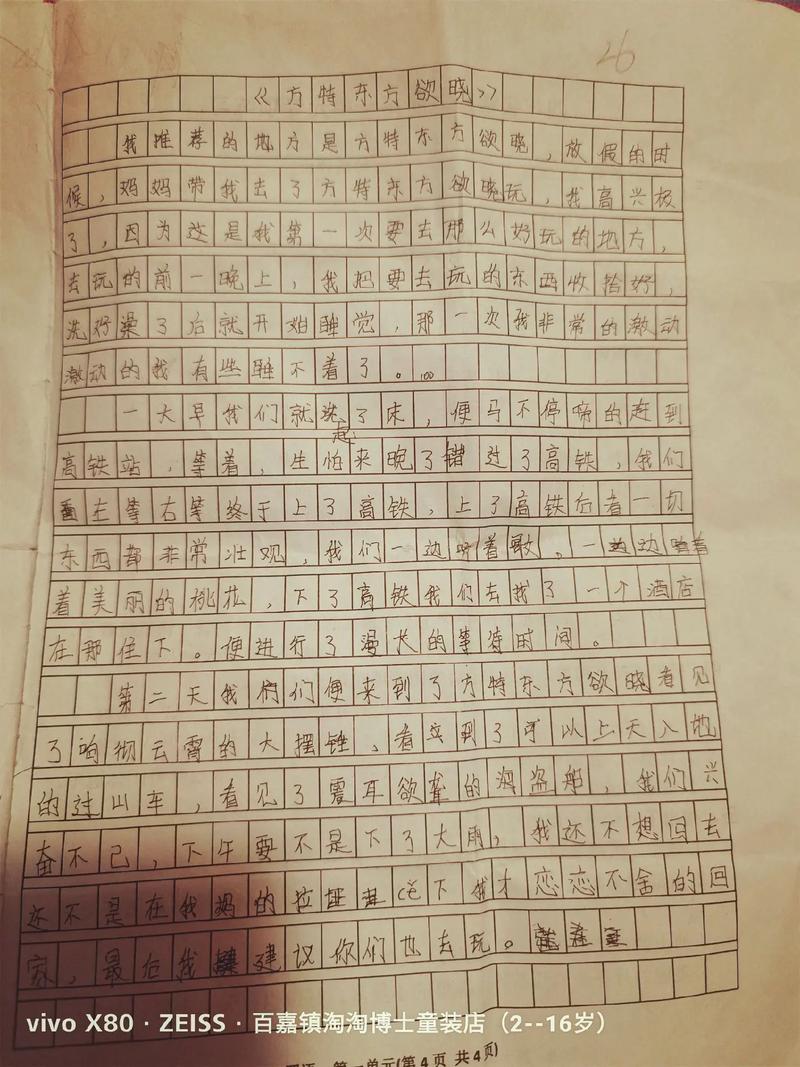 26
《方特东方欲晓》
我推荐的地方是方特东方欲晓，放假的时
候，妈妈带我去了方特东方欲晓玩，我高兴极
了，因为这是我第一次要去那么好玩的地方，
去玩的前一晚上，我把要去玩的东西收拾好，
洗好澡了后就开始睡觉，那一次我非常的激动
激动的我有些睡不着了。100
一大早我们就起了床，便马不停啼的赶到
高铁站，等着，生怕来晚了错过了高铁，我们
左等右等终于上了高铁，上了高铁后看一切
东西都非常壮观，我们一边听着歌。一边
着美丽的桃花，下了高铁我们去找了一个酒店
在那住下。便进行了漫长的等待时间。
第二天我们便来到了方特东方欲晓看见
了响彻云霄的大摆锤、看到了可以上天入地
的过山车，看见了震耳欲聋的海盗船，我们兴
奋不已，下午要不是下了大雨，我还不想回去
还不是在我妈的拉chě下我才恋恋不舍的回
家，最后我建议你们也去玩。
vivo X80 · ZEISS · 百嘉镇淘淘博士童装店（2--16岁）
第一单元(第4页 共4页)